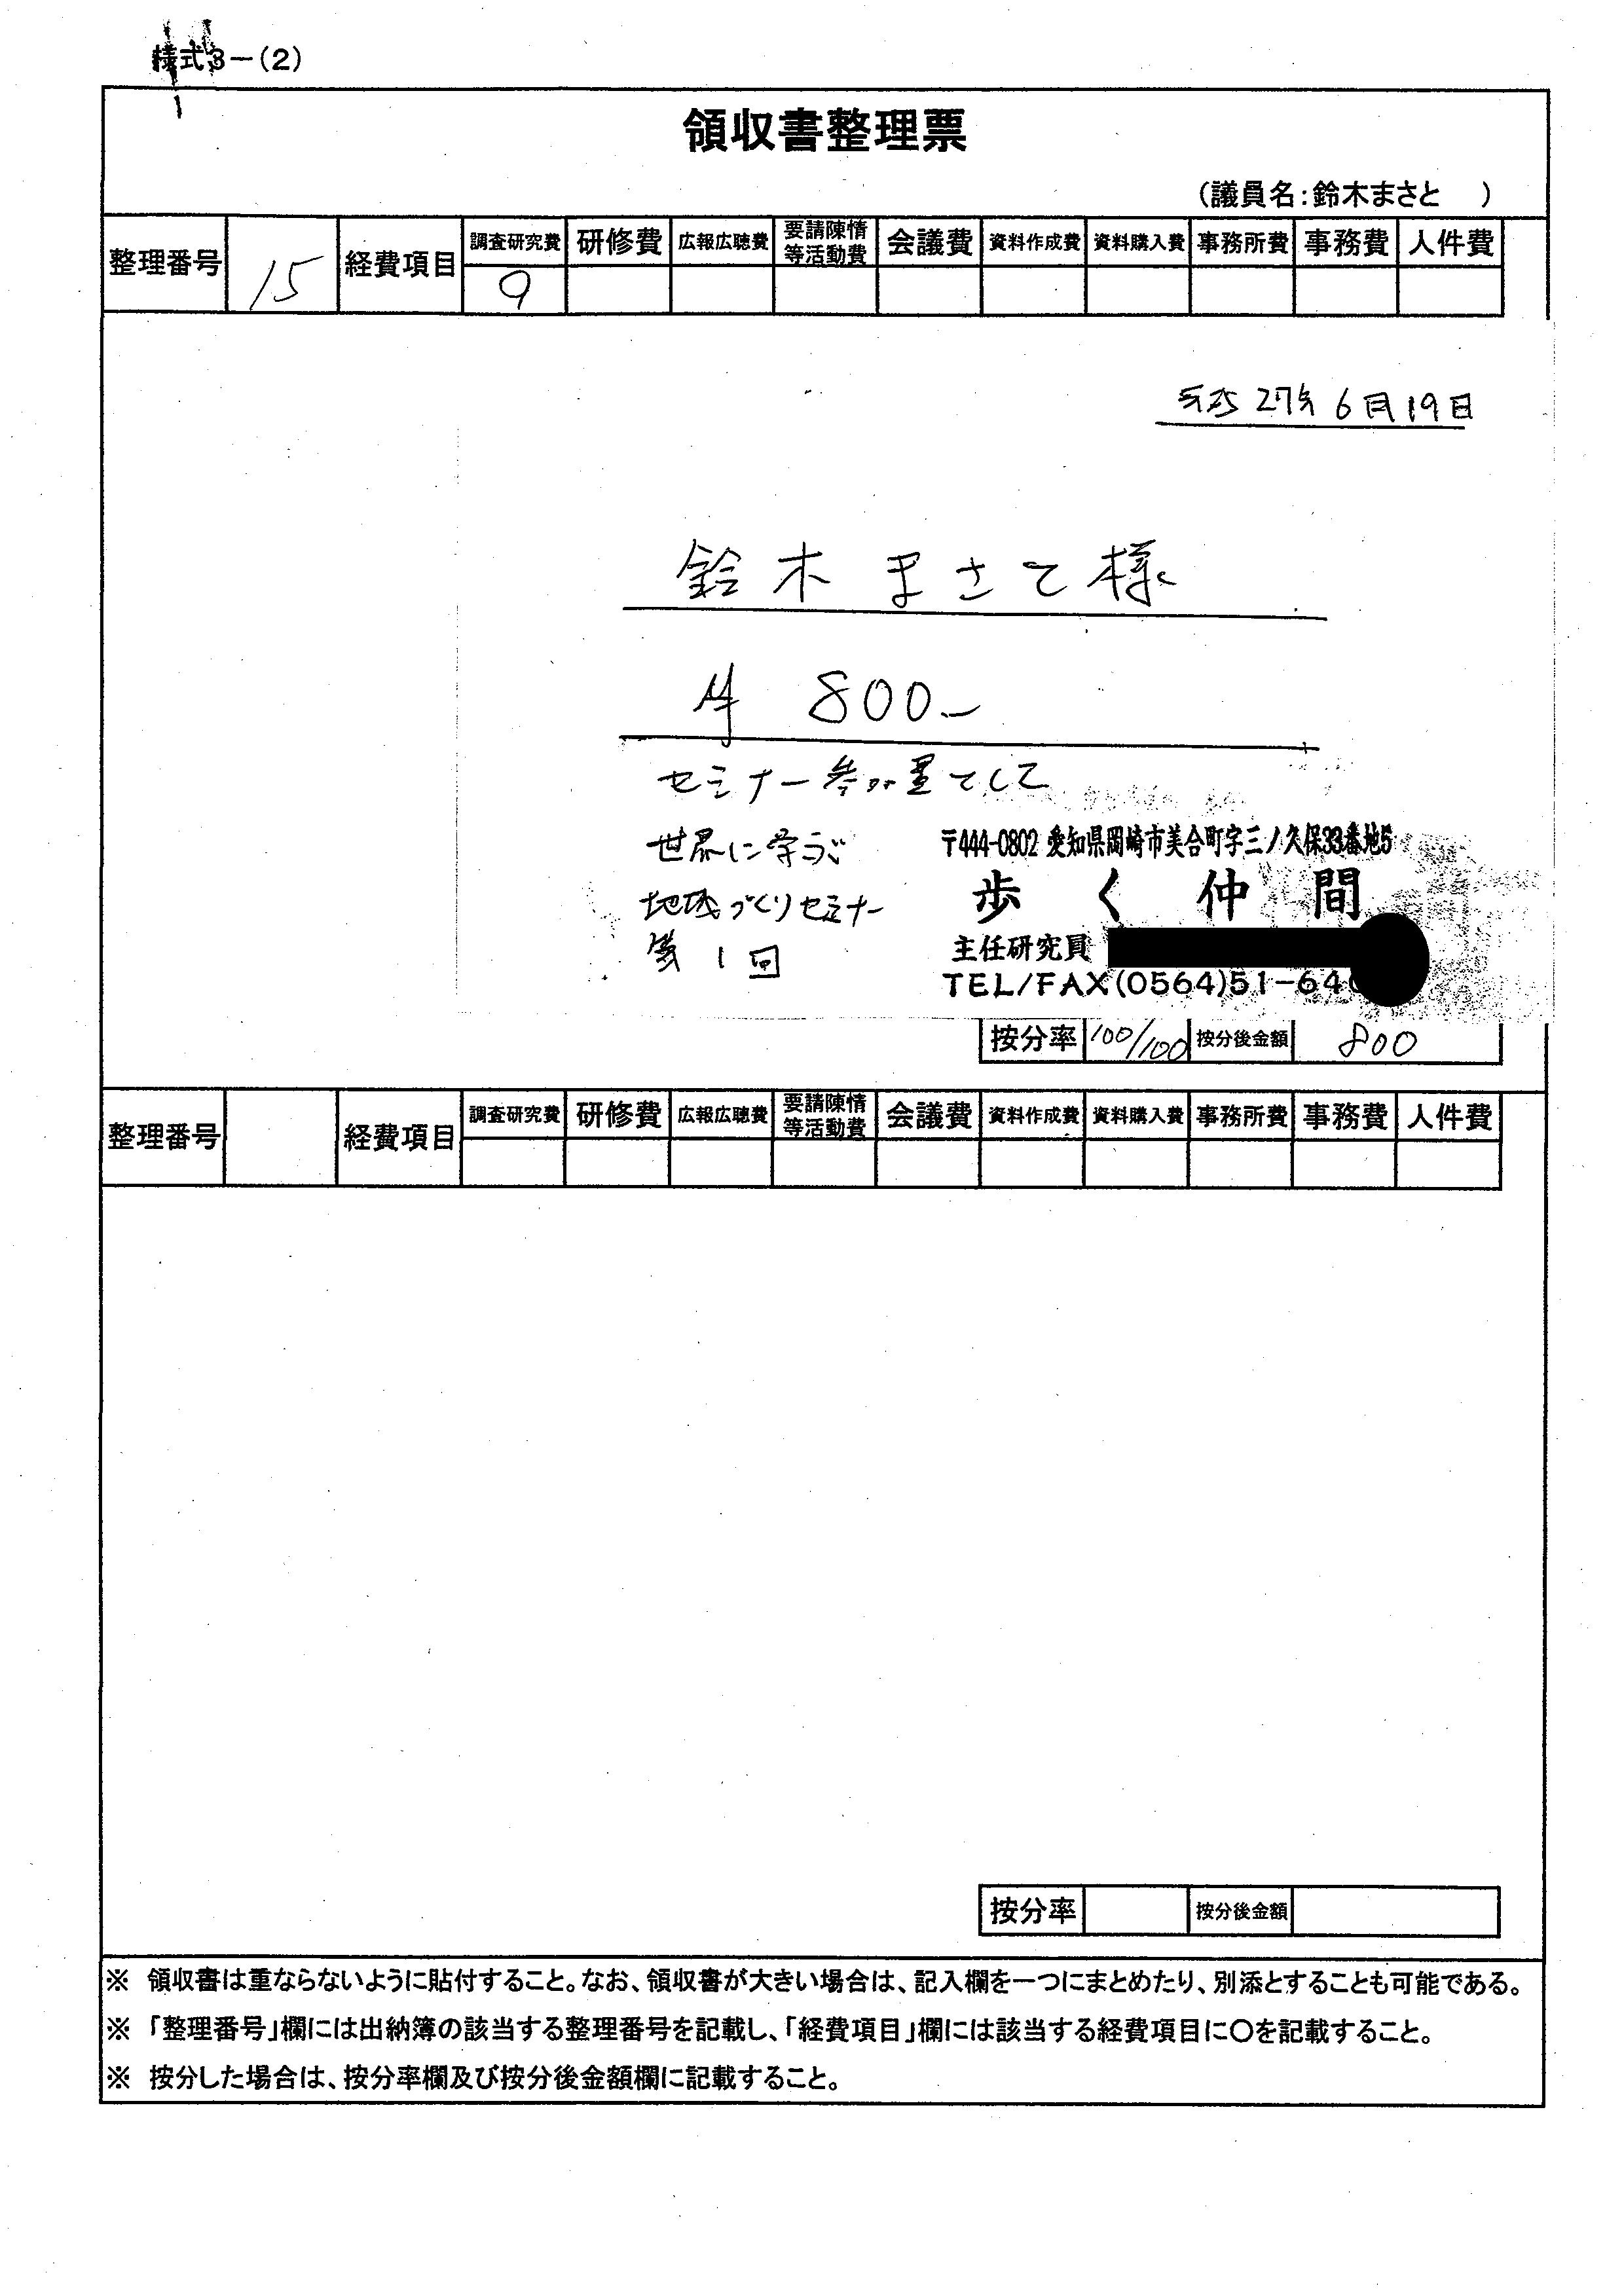 様式3-(2)
領収書整理票
(議員名:鈴木まさと )
整理番号 15 経費項目 調査研究費 研修費 広報広聴費 要請陳情等活動費 会議費 資料作成費 資料購入費 事務所費 事務費 人件費
9
平成27年6月19日
鈴木まさと様
¥800-
セミナー参加費として
世界に学ぶ
地域づくりセミナー
第1回
〒444-0802 愛知県岡崎市美合町字三ノ久保33番地5
歩く仲間
主任研究員
TEL/FAX(0564)51-64
按分率 100/100 按分後金額 800
整理番号 経費項目 調査研究費 研修費 広報広聴費 要請陳情等活動費 会議費 資料作成費 資料購入費 事務所費 事務費 人件費
按分率 按分後金額
※ 領収書は重ならないように貼付すること。なお、領収書が大きい場合は、記入欄を一つにまとめたり、別添とすることも可能である。
※ 「整理番号」欄には出納簿の該当する整理番号を記載し、「経費項目」欄には該当する経費項目に○を記載すること。
※ 按分した場合は、按分率欄及び按分後金額欄に記載すること。